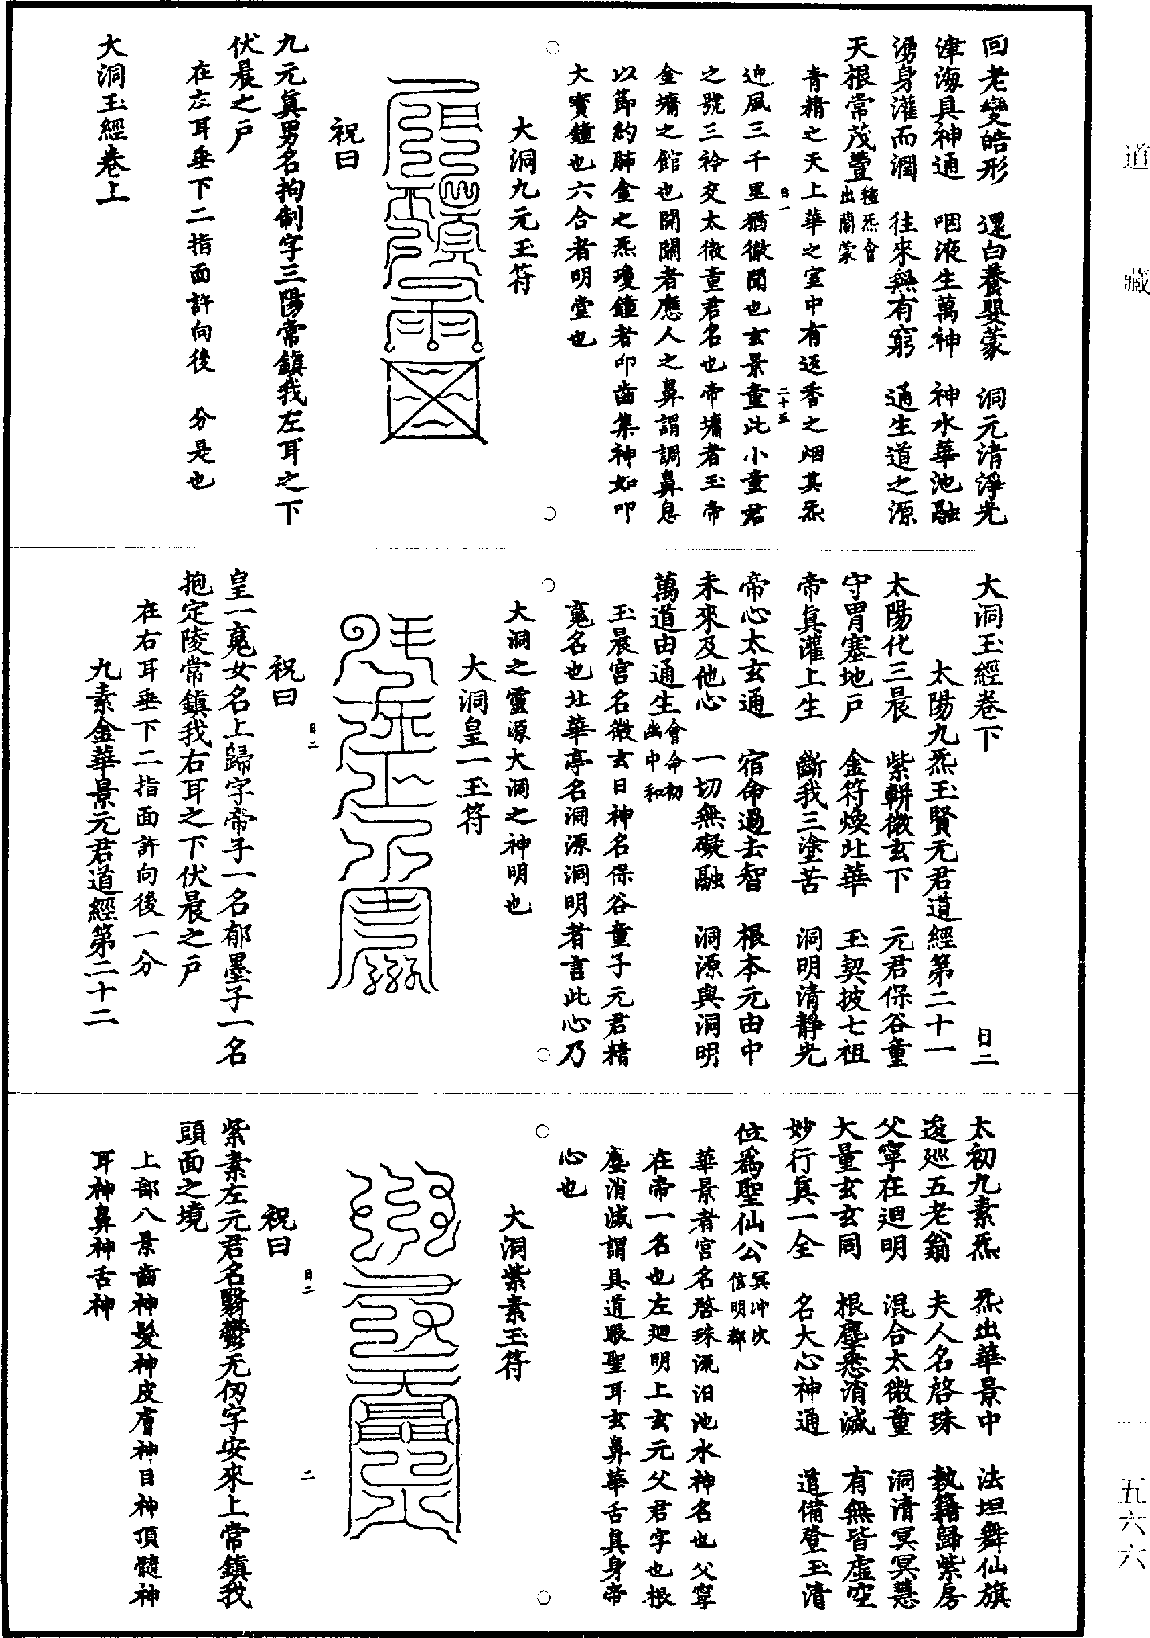 道藏
一
五六六
回老變皓形　還白養嬰蒙　洞元清淨光
津海具神通　咽液生萬神　神水華池融
湧身灌而潤　往來無有窮　通生道之源
天根常茂豐種炁會出蘭蒙
青精之天上華之室中有返香之烟其炁
迎風三千里猶徹聞也玄景童此小童君
之號三衿交太微童君名也帝墉者玉帝
金墉之館也開關者應人之鼻謂調鼻息
以節約肺金之炁瓊鐘者叩齒集神如叩
大寶鐘也六合者明堂也
大洞九元玉符
祝曰
九元真男名拘制字三陽常鎮我左耳之下
伏晨之戶
在左耳垂下二指面許向後　分是也
大洞玉經卷上
日一
二十五
大洞玉經卷下　日二
太陽九炁玉賢元君道經第二十一
太陽化三晨　紫軿微玄下　元君保谷童
守胃塞地戶　金符煥北華　玉契披七祖
帝真灌上生　斷我三塗苦　洞明清靜光
帝心太玄通　宿命過去智　根本元由中
未來及他心　一切無礙融　洞源與洞明
萬道由通生會命初幽中和
玉晨宮名微玄日神名保谷童子元君精
䰟名也北華亭名洞源洞明者言此心乃
大洞之靈源大洞之神明也
大洞皇一玉符
祝曰
日二
皇一䰟女名上歸字帝子一名郁墨子一名
抱定陵常鎮我右耳之下伏晨之戶
在右耳垂下二指面許向後一分
九素金華景元君道經第二十二
太初九素炁　炁出華景中　法坦舞仙旗
逡巡五老翁　夫人名啓珠　執籍歸紫房
父寧在迴明　混合太微童　洞清冥冥慧
大量玄玄同　根塵悉消滅　有無皆虛空
妙行真一全　名大心神通　道備登玉清
位為聖仙公冥沖次信明都
華景者宮名啓珠流汨池水神名也父寧
在帝一名也左迴明上玄元父君字也根
塵消滅謂具道眼聖耳玄鼻華舌真身帝
心也
大洞紫素玉符
祝曰
日二
二
紫素左元君名翳鬱无仞字安來上常鎮我
頭面之境
上部八景齒神髮神皮膚神目神頂髓神
耳神鼻神舌神